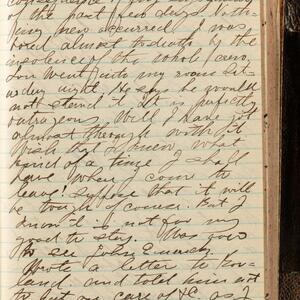 of the past few days. Noth-
ing new occurred. I was
bored almost to death by the
insolence of the whole
Lou went into my room Sat-
urday night. He says he would
not stand it at is perfectly
outrageous. Well I have got
almost through with it
Wish that I knew what
kind of a time I shall
have when I come to
leave! Suppose that it will
be tough of course. But I
know it is not for my
good to stay. Was over
to see John
Wrote a letter to How-
land, and told him not
to put on care of